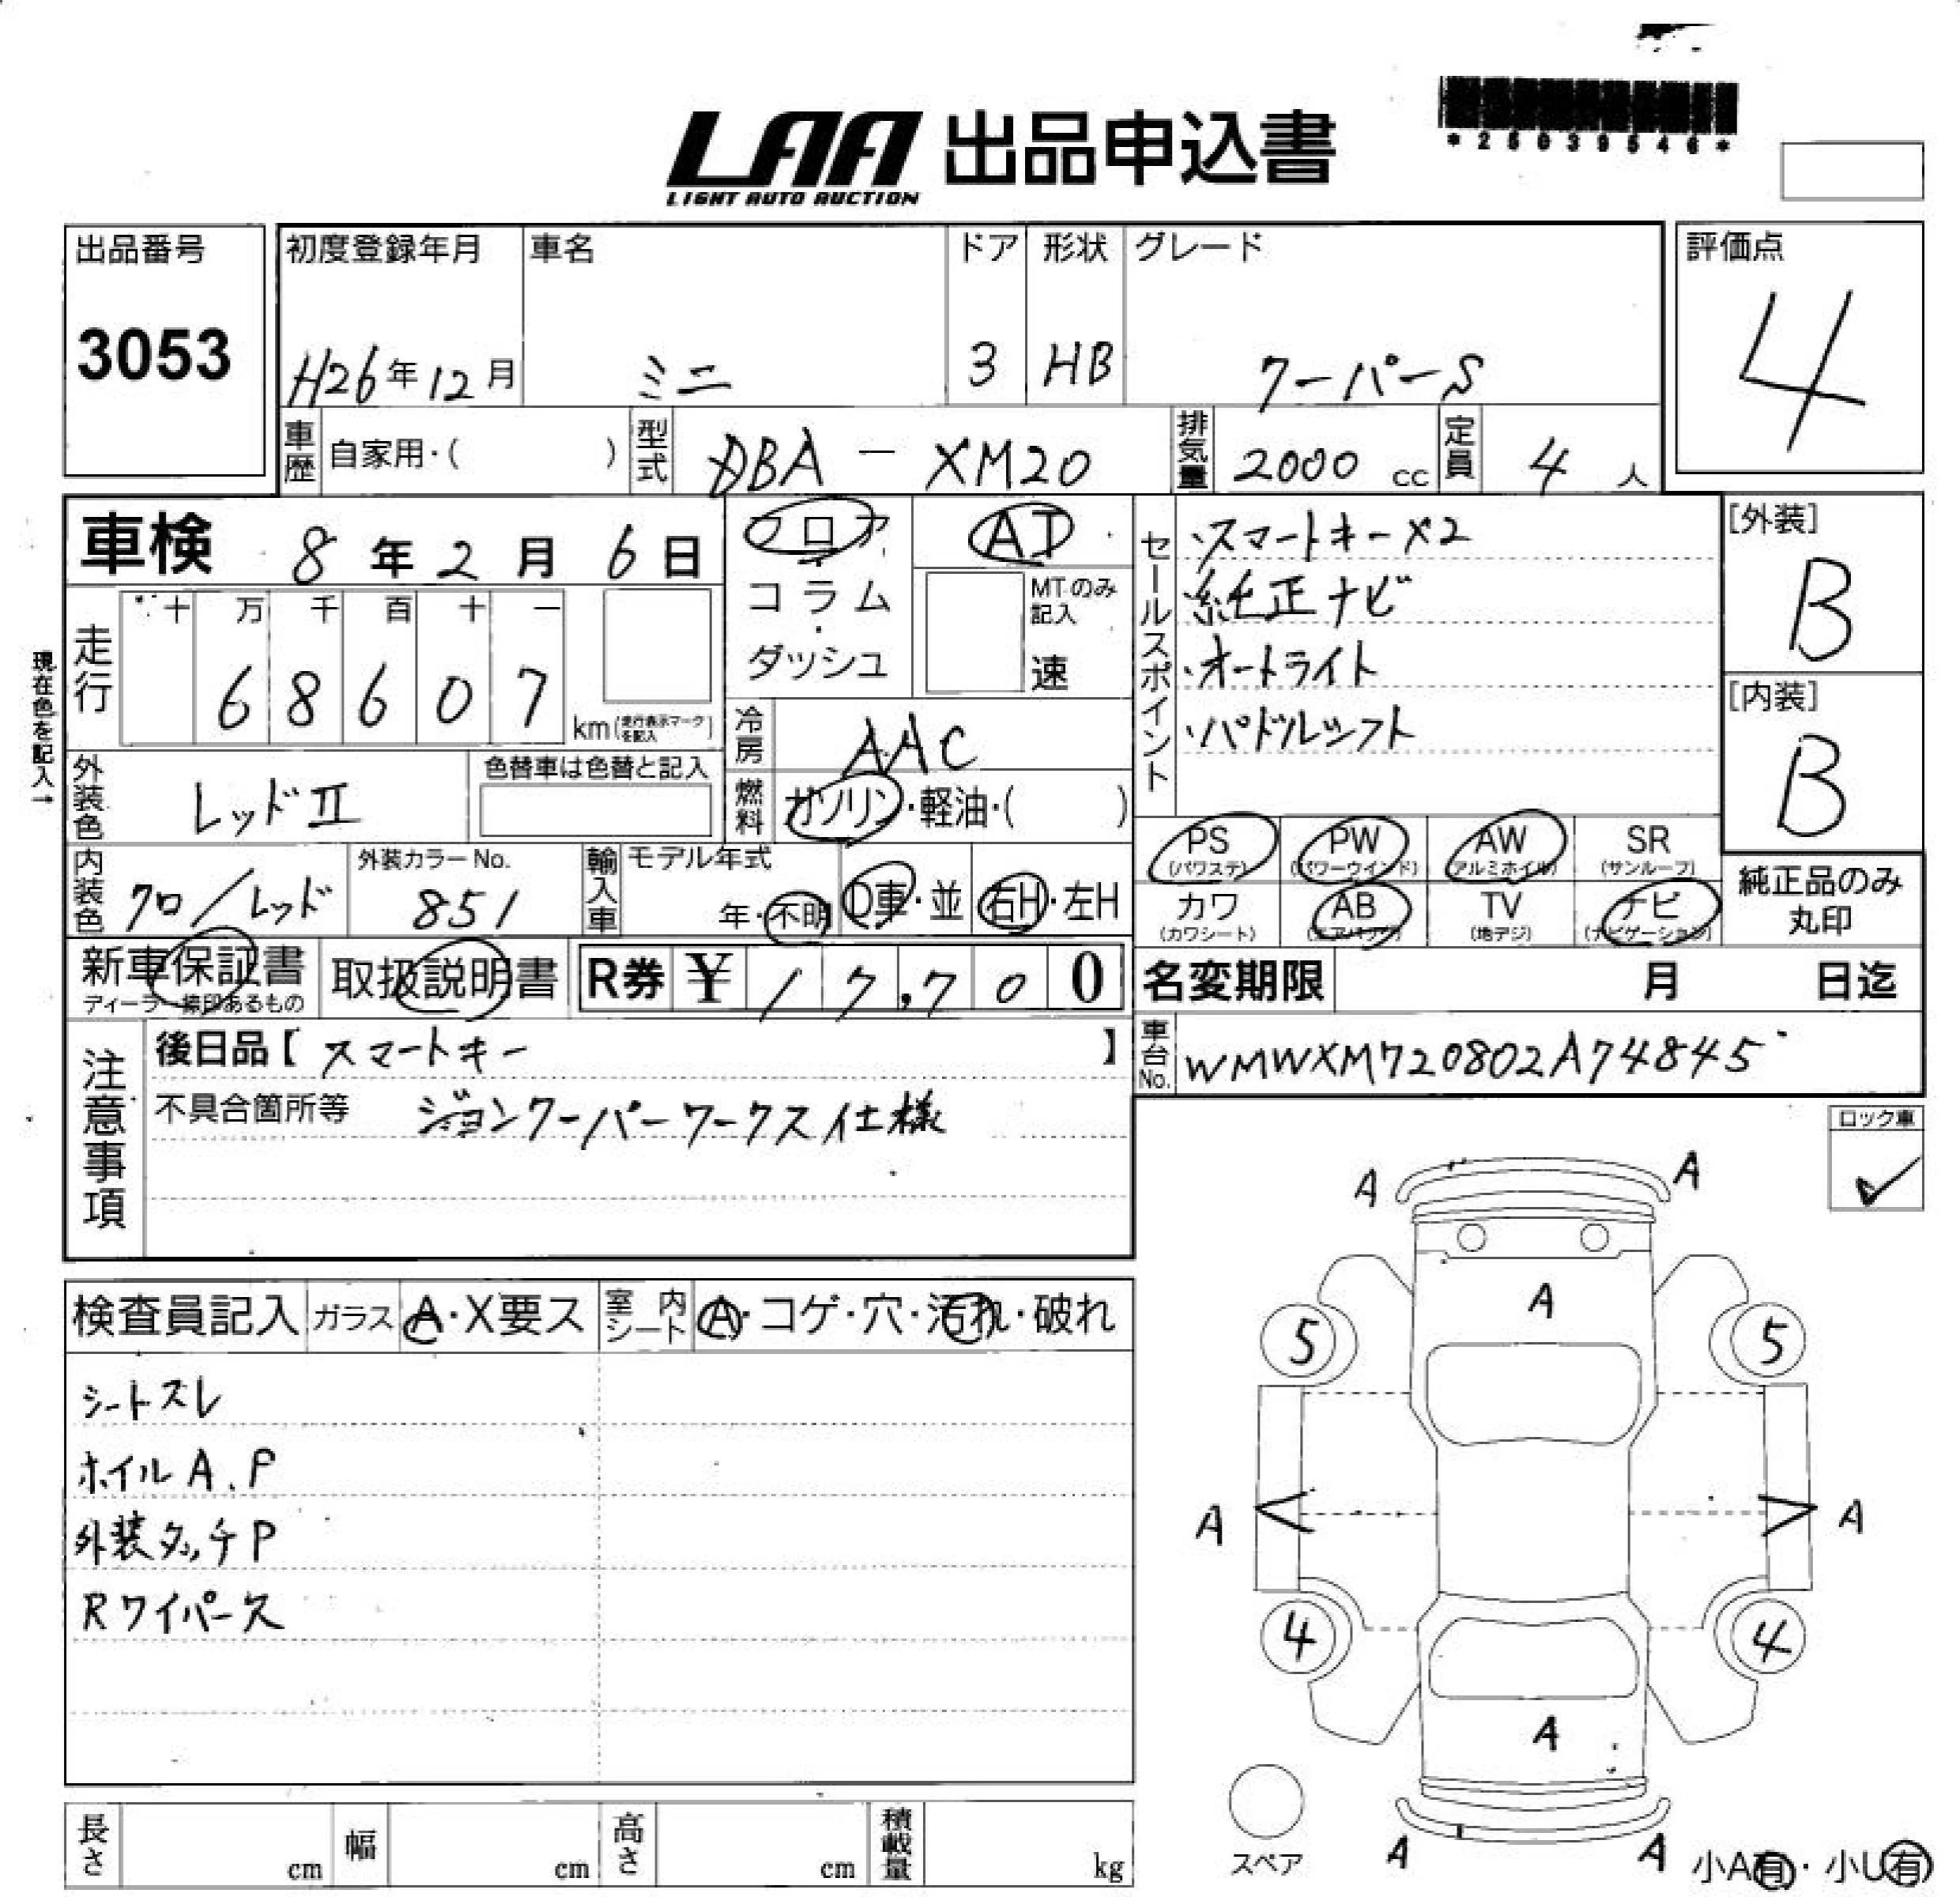 *25039546*
LAA 出品申込書
LIGHT AUTO AUCTION
出品番号 初度登録年月 車名 ドア 形状 グレード 評価点
3053 H26年12月 ミニ 3 HB クーパーS 4
車歴 自家用・( ) 型式 DBA - XM20 排気量 2000 cc 定員 4 人
車検 8年2月6日 フロア・コラム・ダッシュ AT
MTのみ記入 速
セールスポイント
・スマートキー×2
・純正ナビ
・オートライト
・パドルシフト
[外装]
B
[内装]
B
現在色を記入→
走行 十 万 千 百 十 一
6 8 6 0 7 km (走行表示マークを記入)
冷房 AAC
外装色 レッドⅡ 色替車は色替と記入
燃料 ガソリン・軽油・( )
PS (パワステ) PW (パワーウインド) AW (アルミホイル) SR (サンルーフ)
カワ (カワシート) AB (エアバッグ) TV (地デジ) ナビ (ナビゲーション)
純正品のみ
丸印
内装色 クロ/レッド 外装カラーNo. 851 輸入車 モデル年式 年・不明 D車・並 右H・左H
新車保証書 取扱説明書 R券 ¥ 17,700
ディーラー捺印あるもの
名変期限 月 日迄
注意事項
後日品【スマートキー】
車台No. WMWXM720802A74845
不具合箇所等 ジョンクーパーワークス仕様
ロック車
✓
A A
A
5 5
A A
4 4
A
A A
スペア
小A有・小U有
検査員記入 ガラス A・X要ス 室内シート A・コゲ・穴・汚れ・破れ
シートスレ
ホイルA.P
外装タッチP
Rワイパー欠
長さ cm 幅 cm 高さ cm 積載量 kg